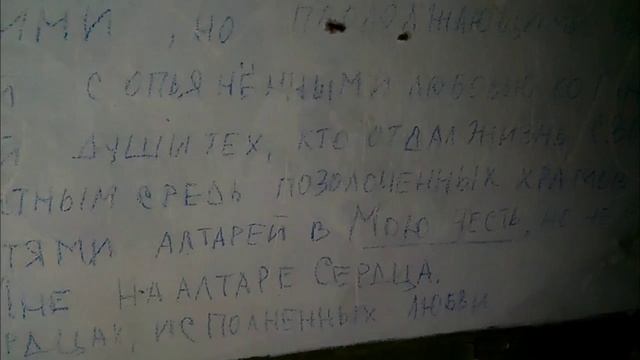 ИМИ, НО ПРОДОЛЖАЮЩИМИ
С ОПЬЯНЁННЫМИ ЛЮБОВЬЮ КО
ДУШЫ ТЕХ, КТО ОТДАЛ ЖИЗНЬ
ТНЫМ СРЕДЬ ПОЗОЛОЧЕННЫХ ХРАМОВ
ТЯМИ АЛТАРЕЙ В МОЮ ЧЕСТЬ, НО НЕ
МНЕ НА АЛТАРЕ СЕРДЦА.
РДЦАХ, ИСПОЛНЕННЫХ ЛЮБВИ